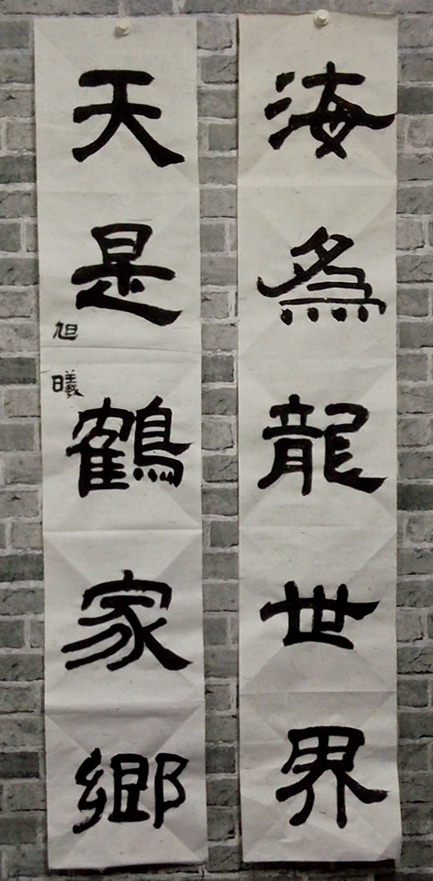 海為龍世界
天是鶴家鄉
旭曦